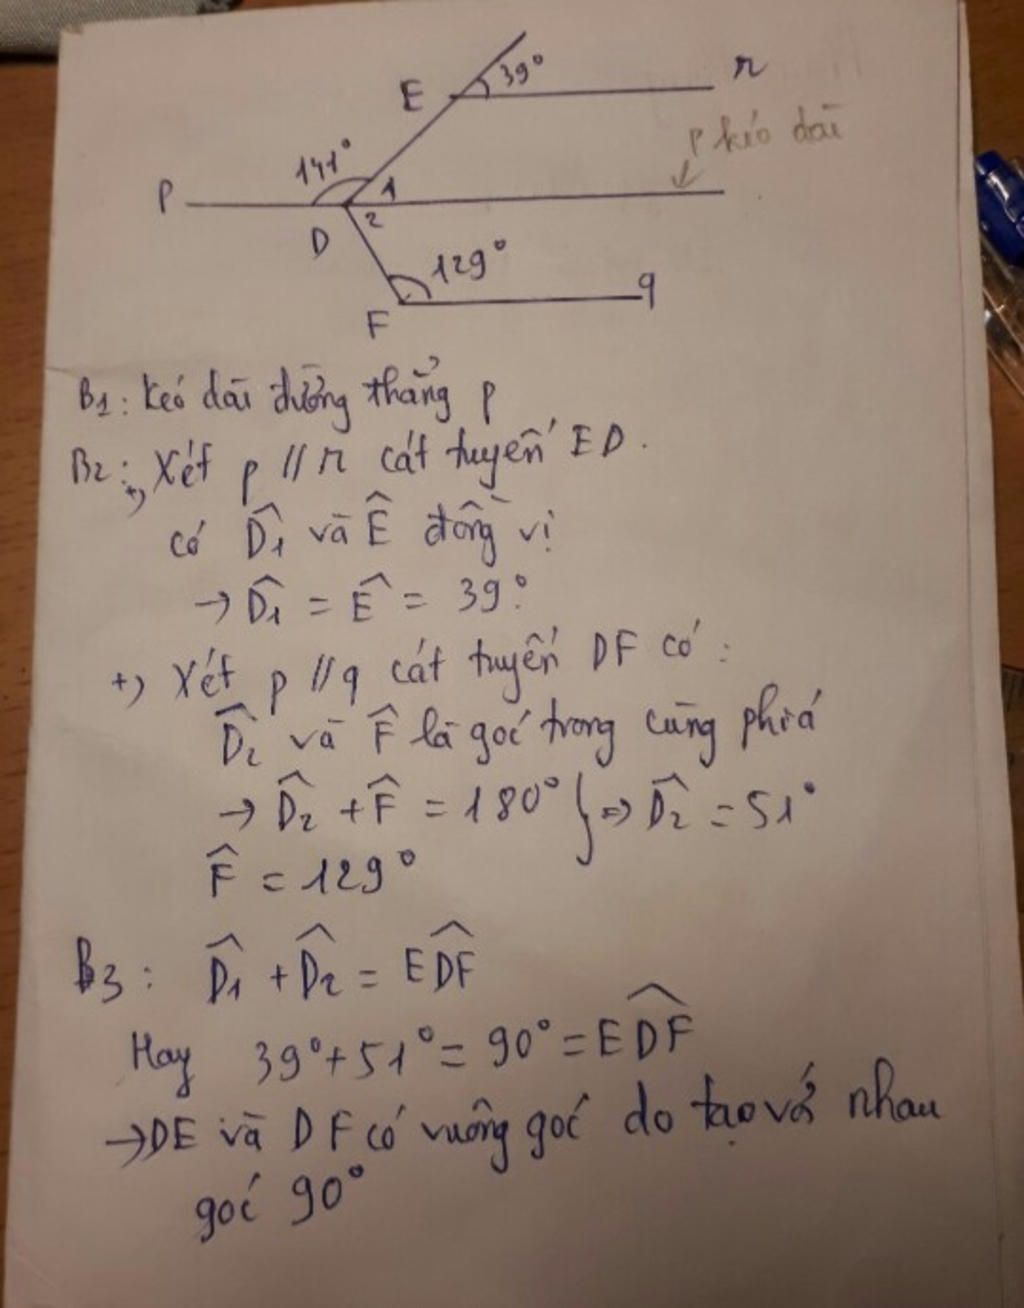 E 39° r
p kéo dài
141° 1
p
D 2
129° q
F
B1: Kéo dài đường thẳng p
B2: Xét p // r cát tuyến ED.
+) có D̂1 và Ê đồng vị
→ D̂1 = Ê = 39°.
+) Xét p // q cát tuyến DF có:
D̂2 và F̂ là góc trong cùng phía
→ D̂2 + F̂ = 180° } => D̂2 = 51°
F̂ = 129°
B3: D̂1 + D̂2 = ED̂F
Hay 39° + 51° = 90° = ED̂F
→ DE và DF có vuông góc do tạo với nhau
góc 90°